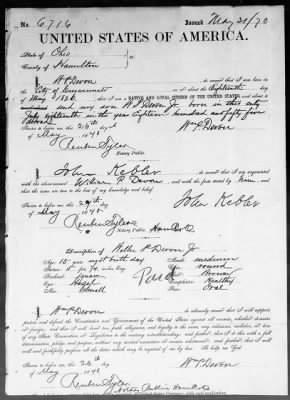 No. 6716 Issued May 30/70
UNITED STATES OF AMERICA.
State of Ohio
County of Hamilton
I, W P Devou, do swear that I was born in
the City of Cincinnati on or about the Eighteenth day of
May; that I am a NATIVE AND LOYAL CITIZEN OF THE UNITED STATES, and about
and my son W P Devou Jr. born in this city
eighteenth in the year Eighteen hundred and fifty five
Sworn to before me this 26th day
of May 1870
Wm P Devou
Reuben Tyler
Notary Public.
I, John Kebler, do swear that I am acquainted
with the above-named William P. Devou, and with the facts stated by him, and
that the same are true to the best of my knowledge and belief.
Sworn to before me this 26th day
of May 1870
John Kebler
Reuben Tyler
Notary Public
Description of Willie P. Devou Jr
Age: 15 years next birth day
Stature: 5 ft
Forehead:
Eyes: Hazel
Nose: Small
Mouth: medium
Chin: round
Hair: Brown
Complexion: Healthy
Face: Oval
I, W P Devou, do solemnly swear that I will support,
protect, and defend the Constitution and Government of the United States against all enemies, whether domestic
or foreign; and that I will bear true faith, allegiance, and loyalty to the same, any ordinance, resolution, or law
of any State, Convention, or Legislature to the contrary notwithstanding; and further, that I do this with a full
determination, pledge, and purpose, without any mental reservation or evasion whatsoever; and further, that I will
well and faithfully perform all the duties which may be required of me by law. So help me God.
W P Devou
Sworn to before me this 26th day
of May 1870
Reuben Tyler
Notary Public